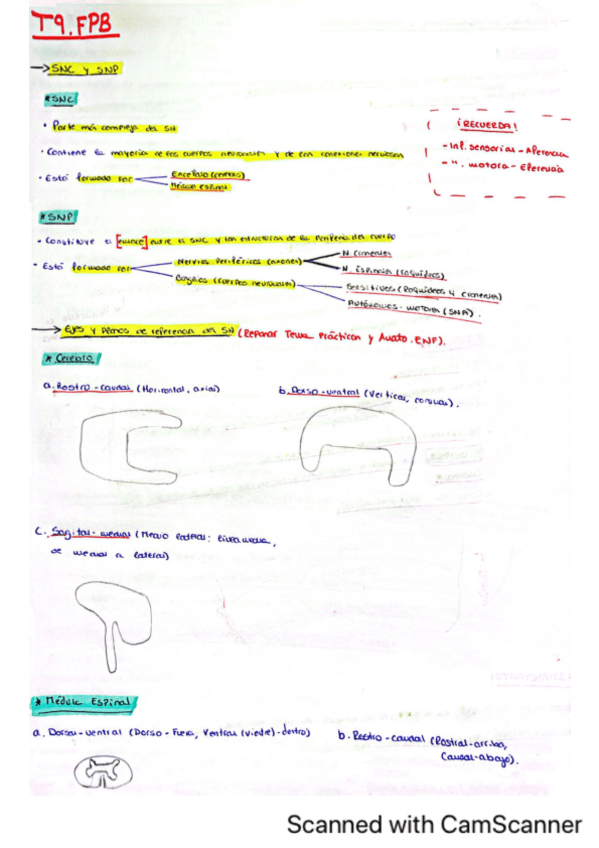 T9. FPB
→ SNC y SNP
* SNC
• Parte más compleja del SN
• Contiene la mayoría de los cuerpos neuronales y de las conexiones nerviosas
• Está formado por
Encéfalo (cerebro)
Médula espinal
¡RECUERDA!
- Inf. sensorias - Aferencia
- " . motora - Eferencia
* SNP
- Constituye el [enlace] entre el SNC y las estructuras de la periferia del cuerpo
- Está formado por
Nervios Periféricos (axones)
N. Craneales
N. Espinales (raquídeos)
Ganglios (cuerpos neuronales)
Sensitivos (Raquídeos y craneales)
Autónomos - motores (SNA).
→ Ejes y planos de referencia del SN (Repasar Tema Prácticas y Anato. ENP).
* Cerebro
a. Rostro-caudal (Horizontal, axial)
b. Dorso-ventral (Vertical, coronal).
c. Sagital-medial (Medio lateral: línea media,
de medial a lateral)
* Médula Espinal
a. Dorso-ventral (Dorso-Fuera, Ventral (vientre)-dentro)
b. Rostro-caudal (Rostral-arriba,
Caudal-abajo).
Scanned with CamScanner